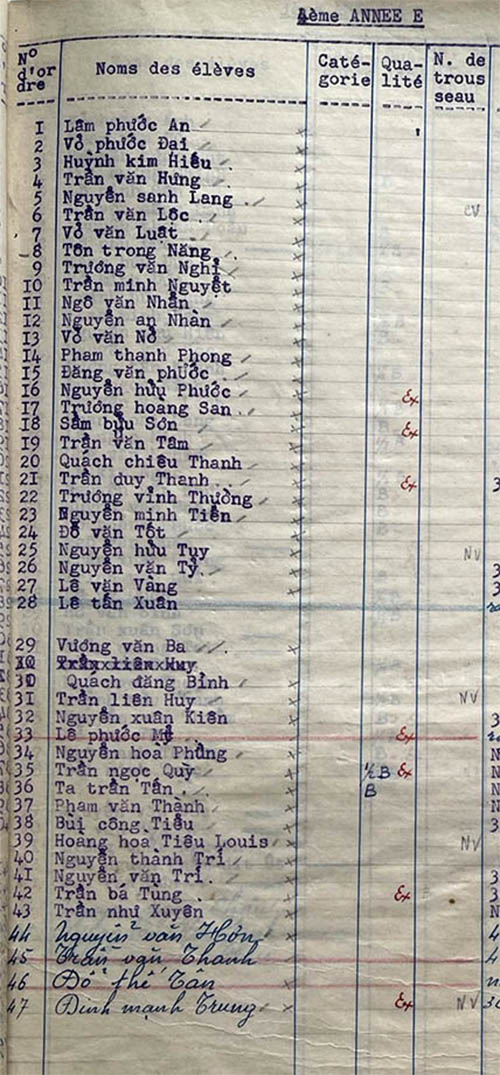 4ème ANNEE E
N° d'or dre Noms des élèves Caté- gorie Qua- lité N. de trous seau
1 Lâm phước An
2 Võ phước Đai
3 Huỳnh kim Hiếu
4 Trần văn Hưng
5 Nguyễn sanh Lang
6 Trần văn Lôc CV
7 Võ văn Luât
8 Tôn trong Năng
9 Trương văn Nghi
10 Trần minh Nguyệt
11 Ngô văn Nhẩn
12 Nguyễn an Nhàn
13 Võ văn Nở
14 Pham thanh Phong
15 Đăng văn phước
16 Nguyễn hửu Phước Ex
17 Trương hoang San
18 Sâm bửu Sơn Ex
19 Trần văn Tâm
20 Quách chiêu Thanh
21 Trần duy Thanh Ex 3
22 Trương vỉnh Thưởng
23 Nguyễn minh Tiên
24 Đỗ văn Tốt
25 Nguyễn hửu Tuy NV
26 Nguyễn văn Tỷ 3
27 Lê văn Vàng 3
28 Lê tấn Xuân
29 Vương văn Ba
30 Quách đăng Bỉnh
31 Trần liên Huy NV
32 Nguyễn xuân Kiên 3
33 Lê phước Mỹ Ex
34 Nguyễn hoà Phủng N
35 Trần ngọc Quý ½ B Ex N
36 Ta trần Tấn B N
37 Pham văn Thành N
38 Bùi công Tiếu 3
39 Hoang hoà Tiêu Louis NV
40 Nguyễn thành Trí
41 Nguyễn văn Trí 3
42 Trần bá Tùng Ex 3
43 Trần như Xuyên N
44 Nguyễn văn Hớn 4
45 Trần văn Thanh 4
46 Đỗ thế Tân
47 Đinh mạnh Trung Ex NV 30